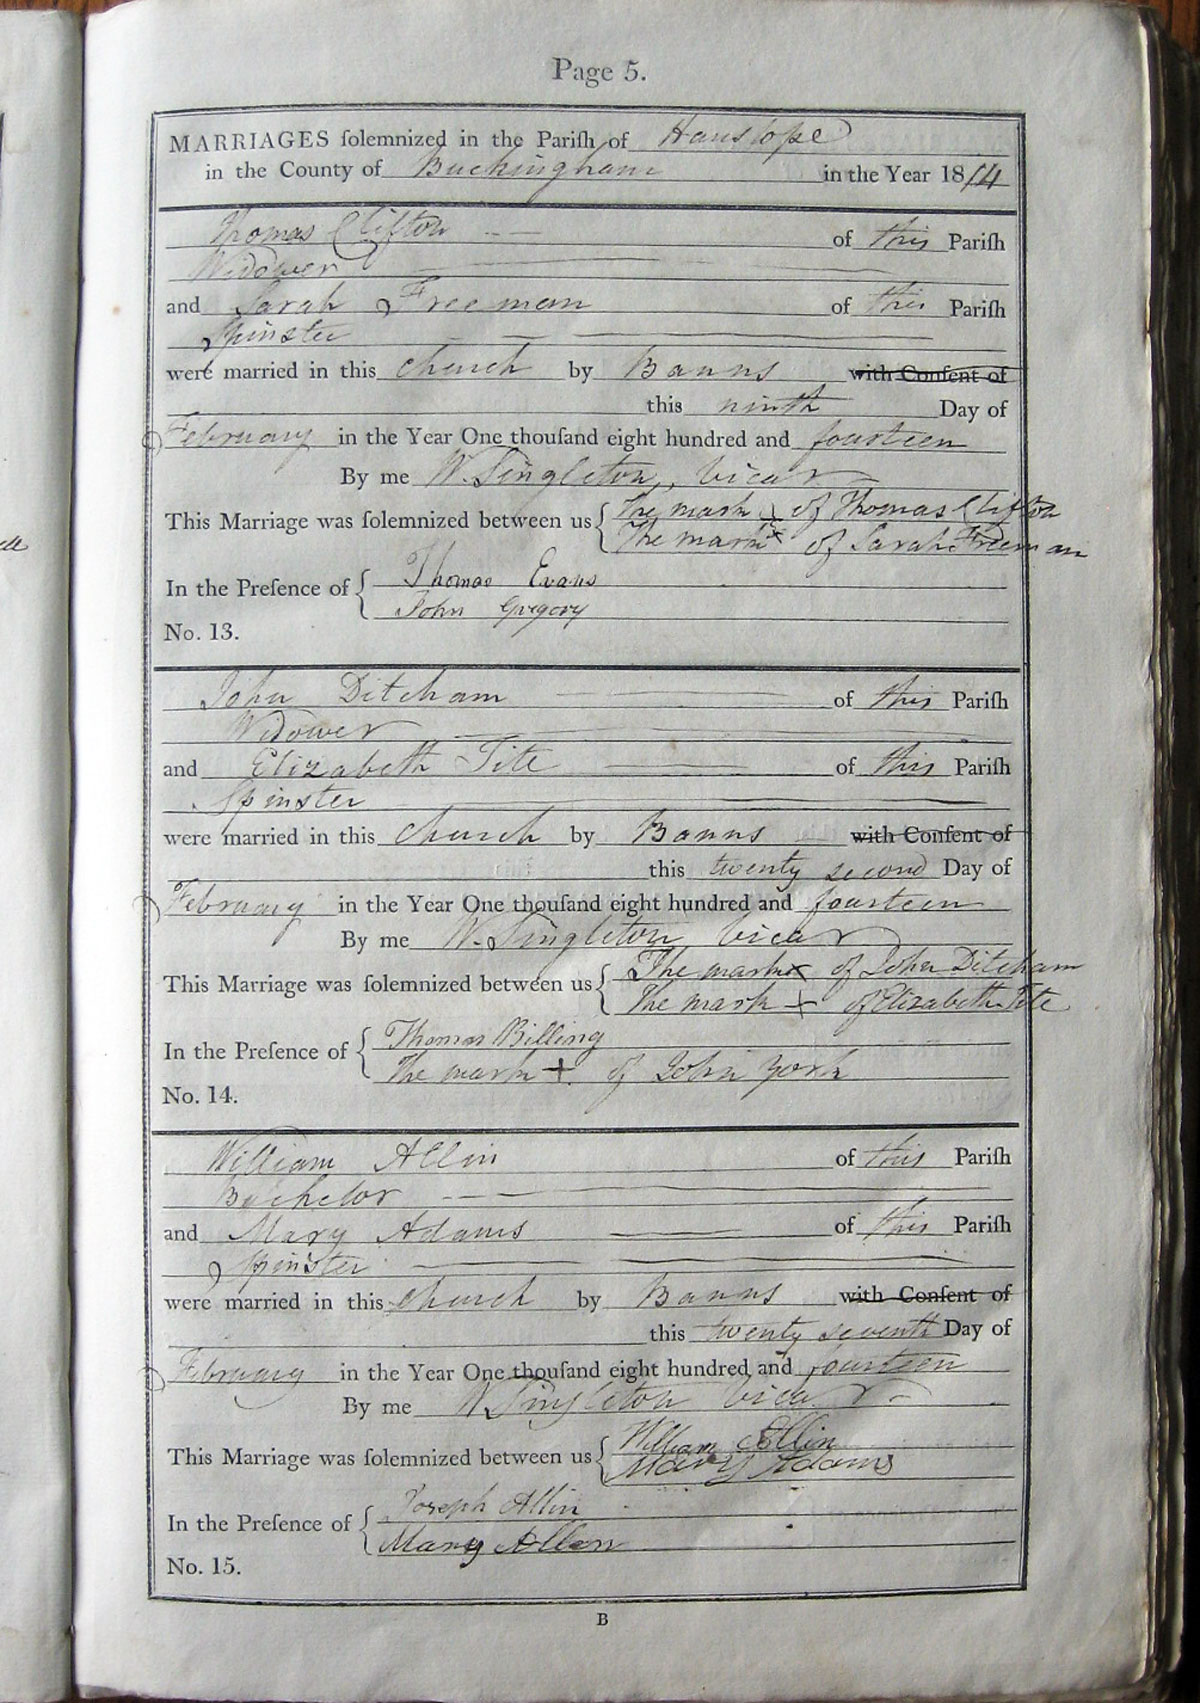 Page 5.
MARRIAGES ſolemnized in the Pariſh of Hanslope
in the County of Buckingham in the Year 1814
Thomas Clifton of this Pariſh
Widower
and Sarah Freeman of this Pariſh
Spinster
were married in this church by Banns with Conſent of
this ninth Day of
February in the Year One thouſand eight hundred and fourteen
By me W. Singleton, vicar
This Marriage was ſolemnized between us { The mark x of Thomas Clifton
The mark x of Sarah Freeman
In the Preſence of { Thomas Evans
John Gregory
No. 13.
John Ditcham of this Pariſh
Widower
and Elizabeth Tite of this Pariſh
Spinster
were married in this church by Banns with Conſent of
this twenty second Day of
February in the Year One thouſand eight hundred and fourteen
By me W. Singleton vicar
This Marriage was ſolemnized between us { The mark x of John Ditcham
The mark + of Elizabeth Tite
In the Preſence of { Thomas Billing
The mark + of John York
No. 14.
William Allin of this Pariſh
Bachelor
and Mary Adams of this Pariſh
Spinster
were married in this church by Banns with Conſent of
this twenty seventh Day of
February in the Year One thouſand eight hundred and fourteen
By me W. Singleton vicar
This Marriage was ſolemnized between us { William Allin
Mary Adams
In the Preſence of { Joseph Allin
Mary Allen
No. 15.
B